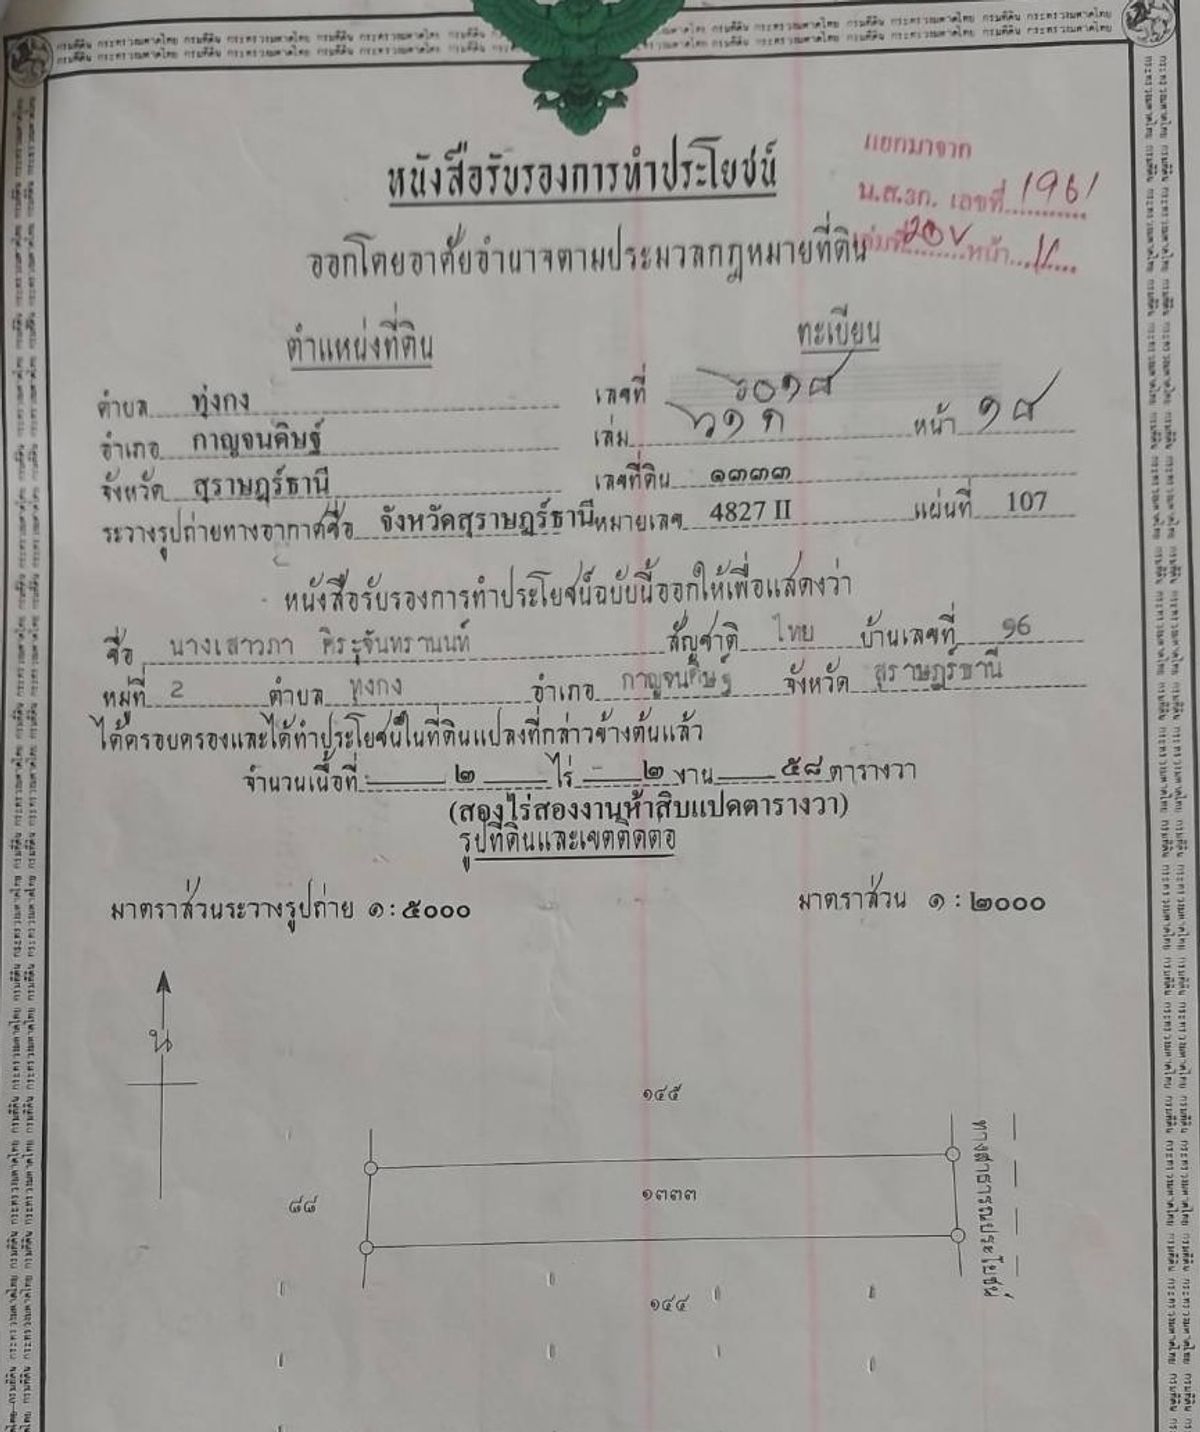 กรมที่ดิน กระทรวงมหาดไทย กรมที่ดิน กระทรวงมหาดไทย กรมที่ดิน กระทรวงมหาดไทย
หนังสือรับรองการทำประโยชน์
แยกมาจาก
น.ส.๓ก. เลขที่ 1961
หน้า 11
ออกโดยอาศัยอำนาจตามประมวลกฎหมายที่ดิน
ตำแหน่งที่ดิน ทะเบียน
ตำบล ทุ่งกง เลขที่
อำเภอ กาญจนดิษฐ์ เล่ม หน้า ๑๘
จังหวัด สุราษฎร์ธานี เลขที่ดิน ๑๓๓๓
ระวางรูปถ่ายทางอากาศชื่อ จังหวัดสุราษฎร์ธานี หมายเลข 4827 II แผ่นที่ 107
หนังสือรับรองการทำประโยชน์ฉบับนี้ออกให้เพื่อแสดงว่า
ชื่อ นางเสาวภา ศิระจันทรานนท์ สัญชาติ ไทย บ้านเลขที่ 96
หมู่ที่ 2 ตำบล ทุ่งกง อำเภอ กาญจนดิษฐ์ จังหวัด สุราษฎร์ธานี
ได้ครอบครองและได้ทำประโยชน์ในที่ดินแปลงที่กล่าวข้างต้นแล้ว
จำนวนเนื้อที่ ๒ ไร่ ๒ งาน ๕๘ ตารางวา
(สองไร่สองงานห้าสิบแปดตารางวา)
รูปที่ดินและเขตติดต่อ
มาตราส่วนระวางรูปถ่าย ๑ : ๕๐๐๐ มาตราส่วน ๑ : ๒๐๐๐
น
๑๔๕
๘๘ ๑๓๓๓ ทางสาธารณประโยชน์
๑๔๔